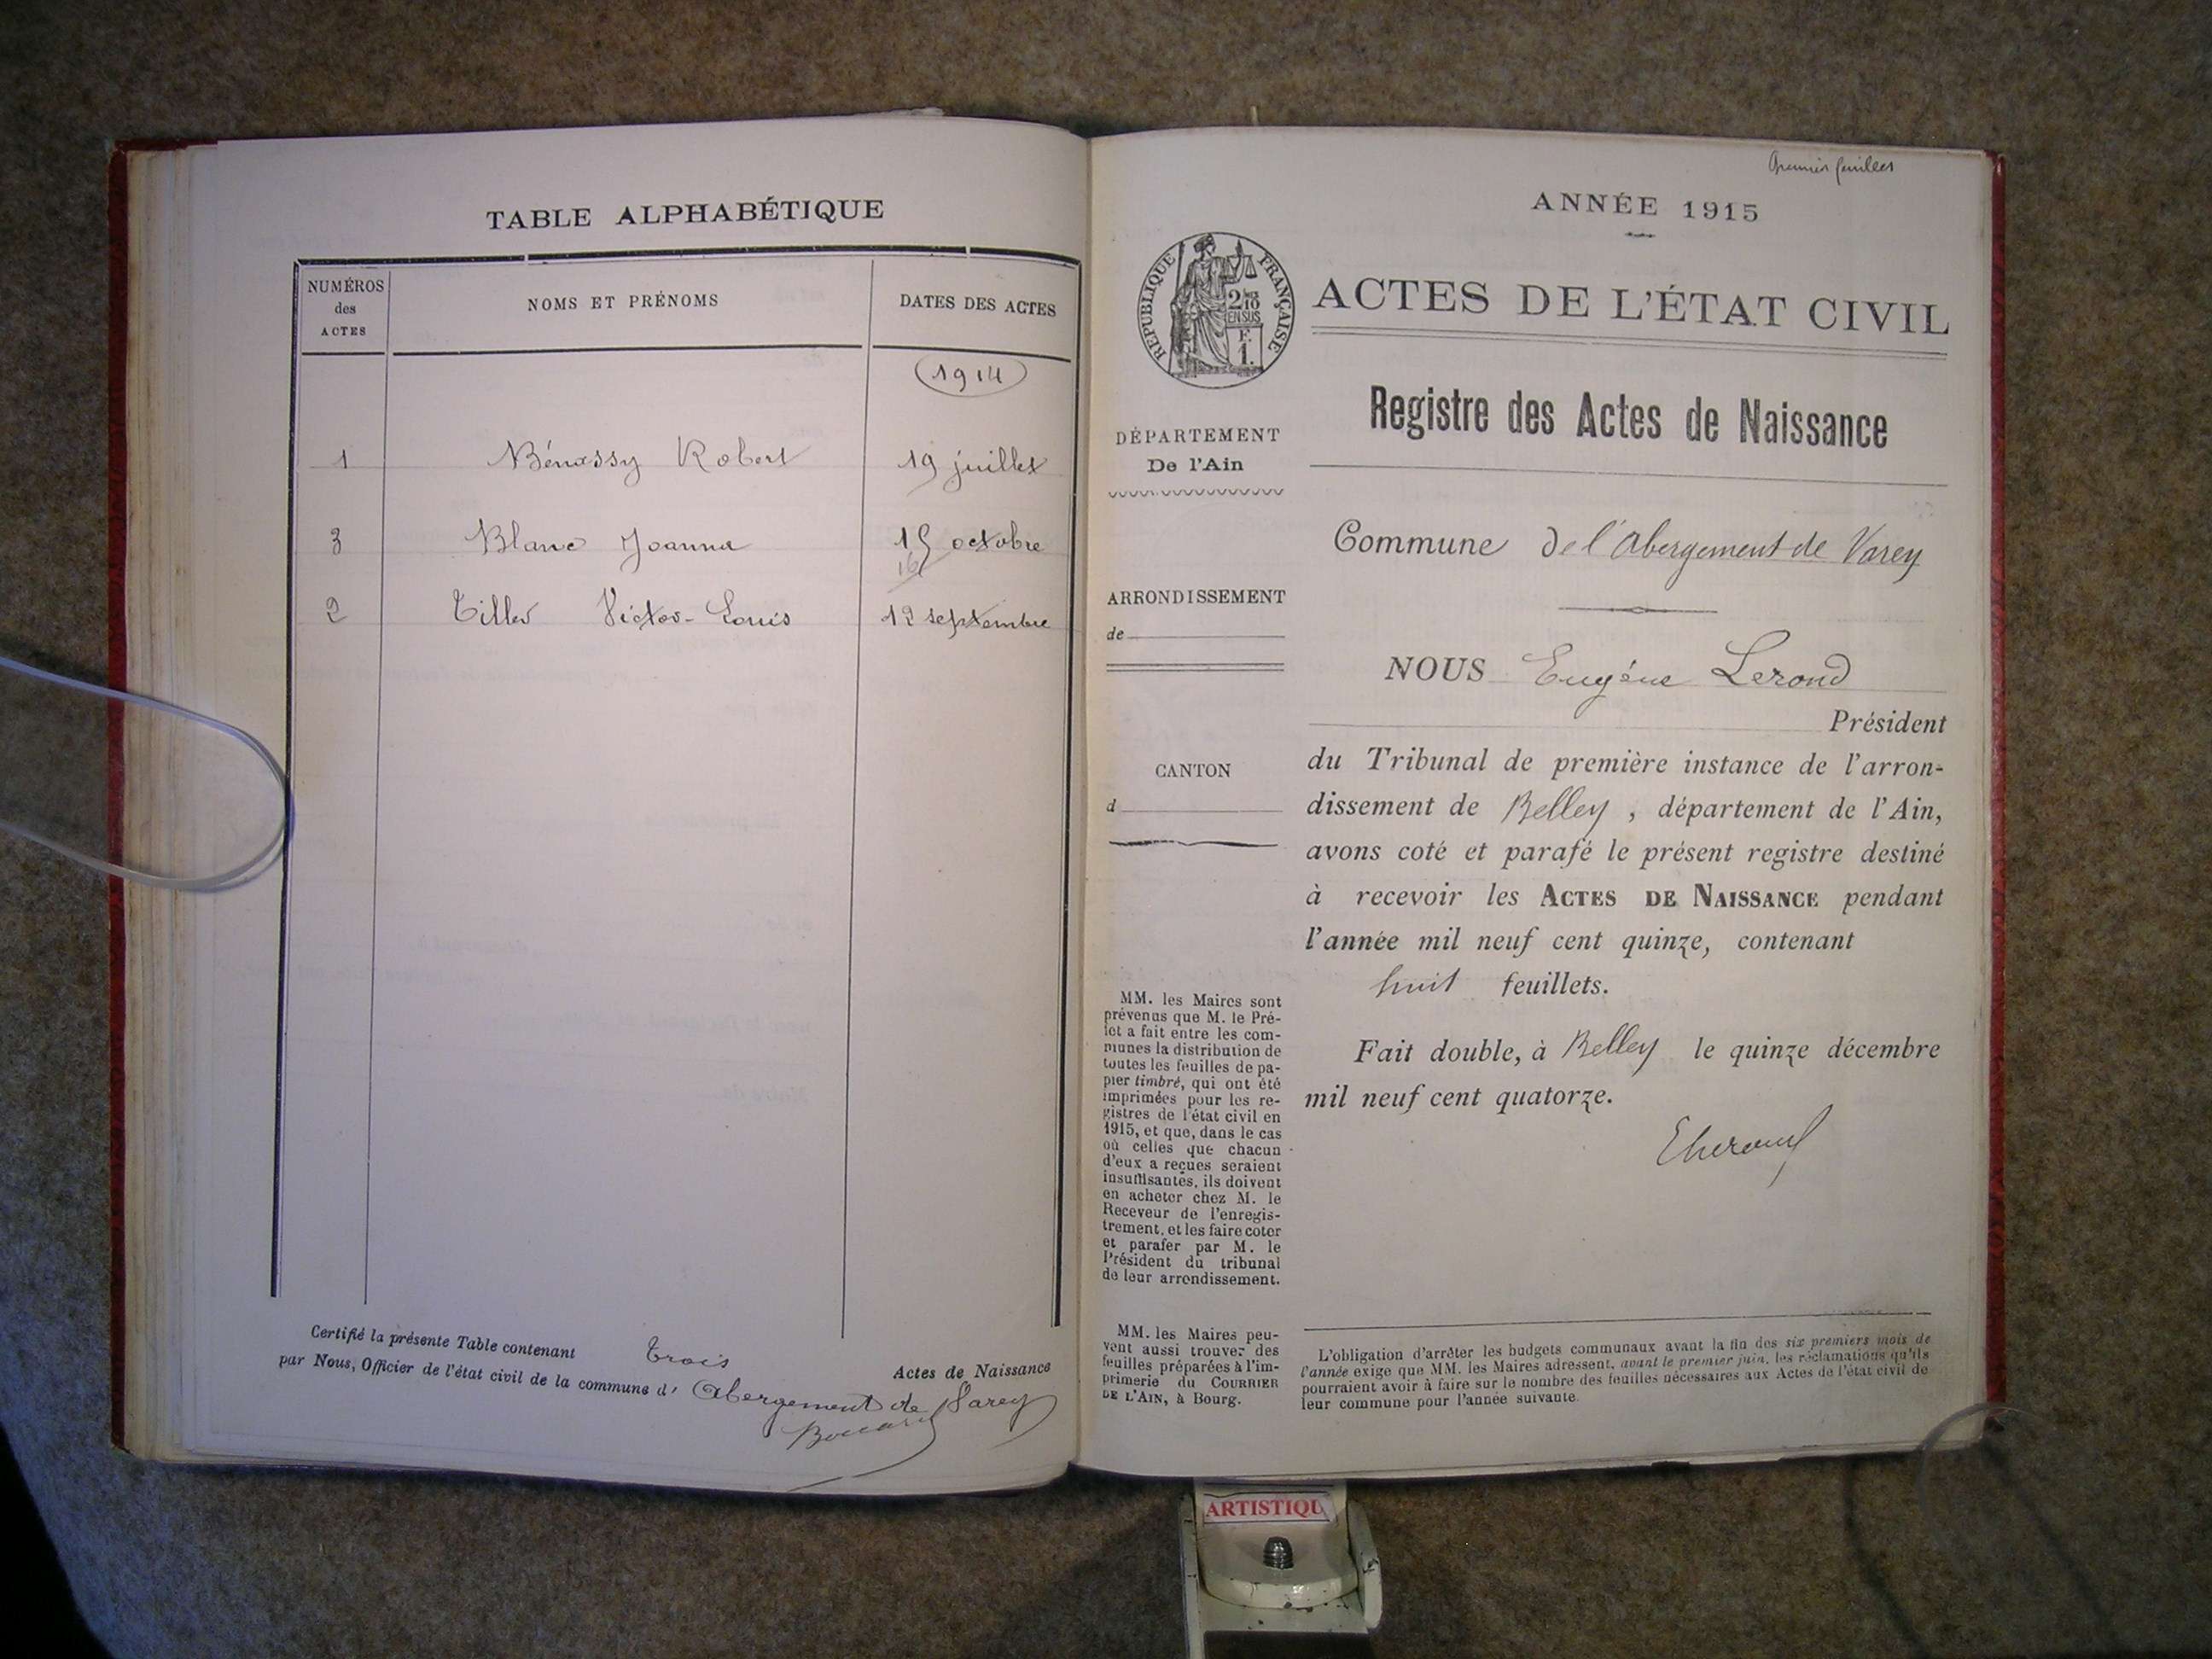 TABLE ALPHABÉTIQUE
NUMÉROS
des
ACTES
NOMS ET PRÉNOMS
DATES DES ACTES
1914
1 Bénassy Robert 19 juillet
3 Blanc Joanna 15 octobre
16
2 Tiller Victor-Louis 12 septembre
Certifié la présente Table contenant trois Actes de Naissance
par Nous, Officier de l'état civil de la commune d' Abergement de Varey
premier feuillet
ANNÉE 1915
RÉPUBLIQUE FRANÇAISE
2/10
EN SUS
F.
1.
ACTES DE L'ÉTAT CIVIL
Registre des Actes de Naissance
DÉPARTEMENT
De l'Ain
ARRONDISSEMENT
de
CANTON
d
MM. les Maires sont
prévenus que M. le Pré-
fet a fait entre les com-
munes la distribution de
toutes les feuilles de pa-
pier timbré, qui ont été
imprimées pour les re-
gistres de l'état civil en
1915, et que, dans le cas
où celles que chacun
d'eux a reçues seraient
insuffisantes, ils doivent
en acheter chez M. le
Receveur de l'enregis-
trement, et les faire coter
et parafer par M. le
Président du tribunal
de leur arrondissement.
MM. les Maires peu-
vent aussi trouver des
feuilles préparées à l'im-
primerie du COURRIER
DE L'AIN, à Bourg.
Commune de l'Abergement de Varey
NOUS Eugène Lerond
Président
du Tribunal de première instance de l'arron-
dissement de Belley, département de l'Ain,
avons coté et parafé le présent registre destiné
à recevoir les ACTES DE NAISSANCE pendant
l'année mil neuf cent quinze, contenant
huit feuillets.
Fait double, à Belley le quinze décembre
mil neuf cent quatorze.
L'obligation d'arrêter les budgets communaux avant la fin des six premiers mois de
l'année exige que MM. les Maires adressent, avant le premier juin, les réclamations qu'ils
pourraient avoir à faire sur le nombre des feuilles nécessaires aux Actes de l'état civil de
leur commune pour l'année suivante.
ARTISTIQU